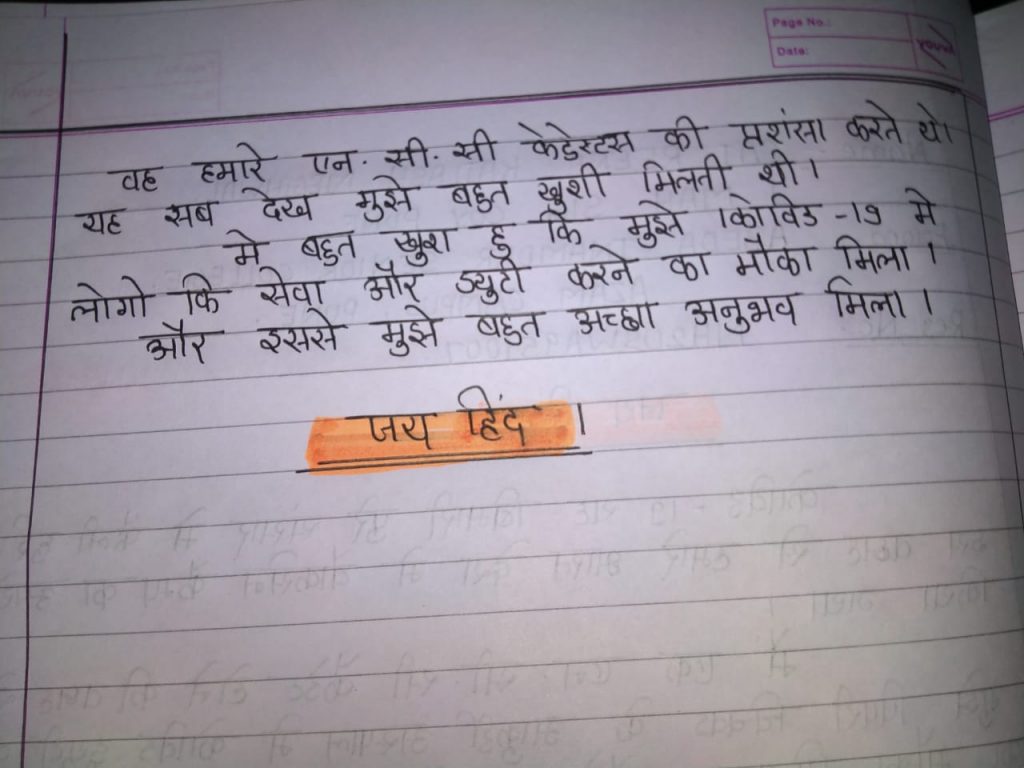 Page No.:
Date:
वह हमारे एन. सी. सी केडेस्टस की प्रशंसा करते थे।
यह सब देख मुझे बहुत खुशी मिलती थी।
मे बहुत खुश हु कि मुझे कोविड -19 मे
लोगो कि सेवा और ड्युटी करने का मौका मिला।
और इससे मुझे बहुत अच्छा अनुभव मिला।
जय हिंद।